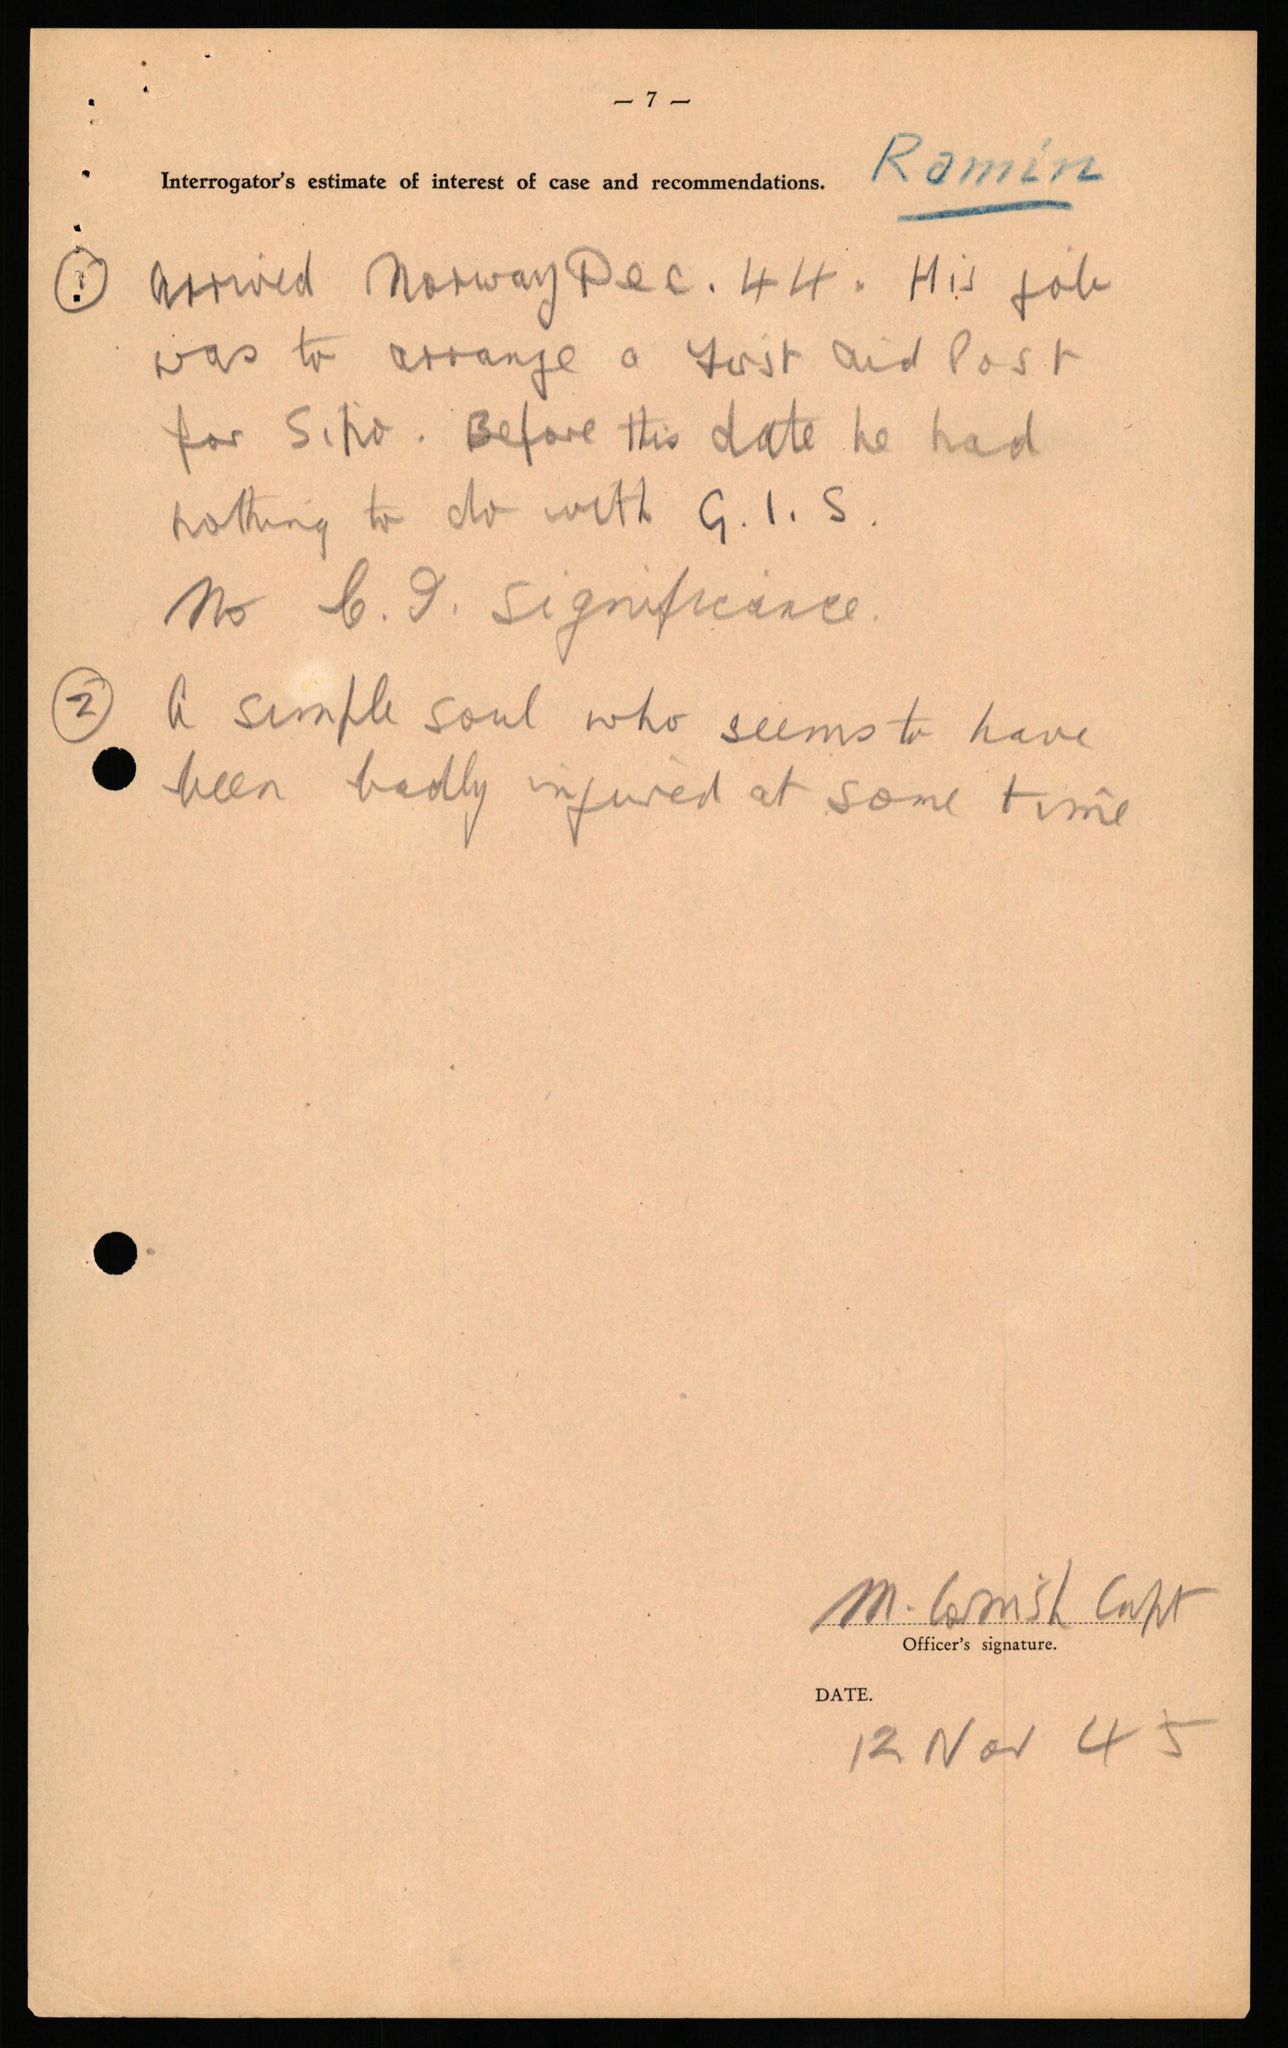 — 7 —
Ramin
Interrogator's estimate of interest of case and recommendations.
① Arrived Norway Dec. 44. His job
was to arrange a First Aid Post
for Sipo. Before this date he had
nothing to do with G.I.S.
No C.I. significance.
② A simple soul who seems to have
been badly injured at some time
M. Cornish Capt
Officer's signature.
DATE.
12 Nov 45